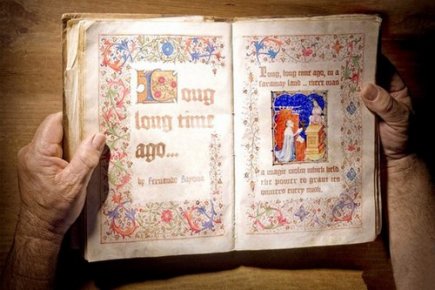 Long
long time
ago...
by Fernando Bayona
Long, long time ago, in a
faraway land ... there was
a magic violin which held
the power to grant its
owners every wish.